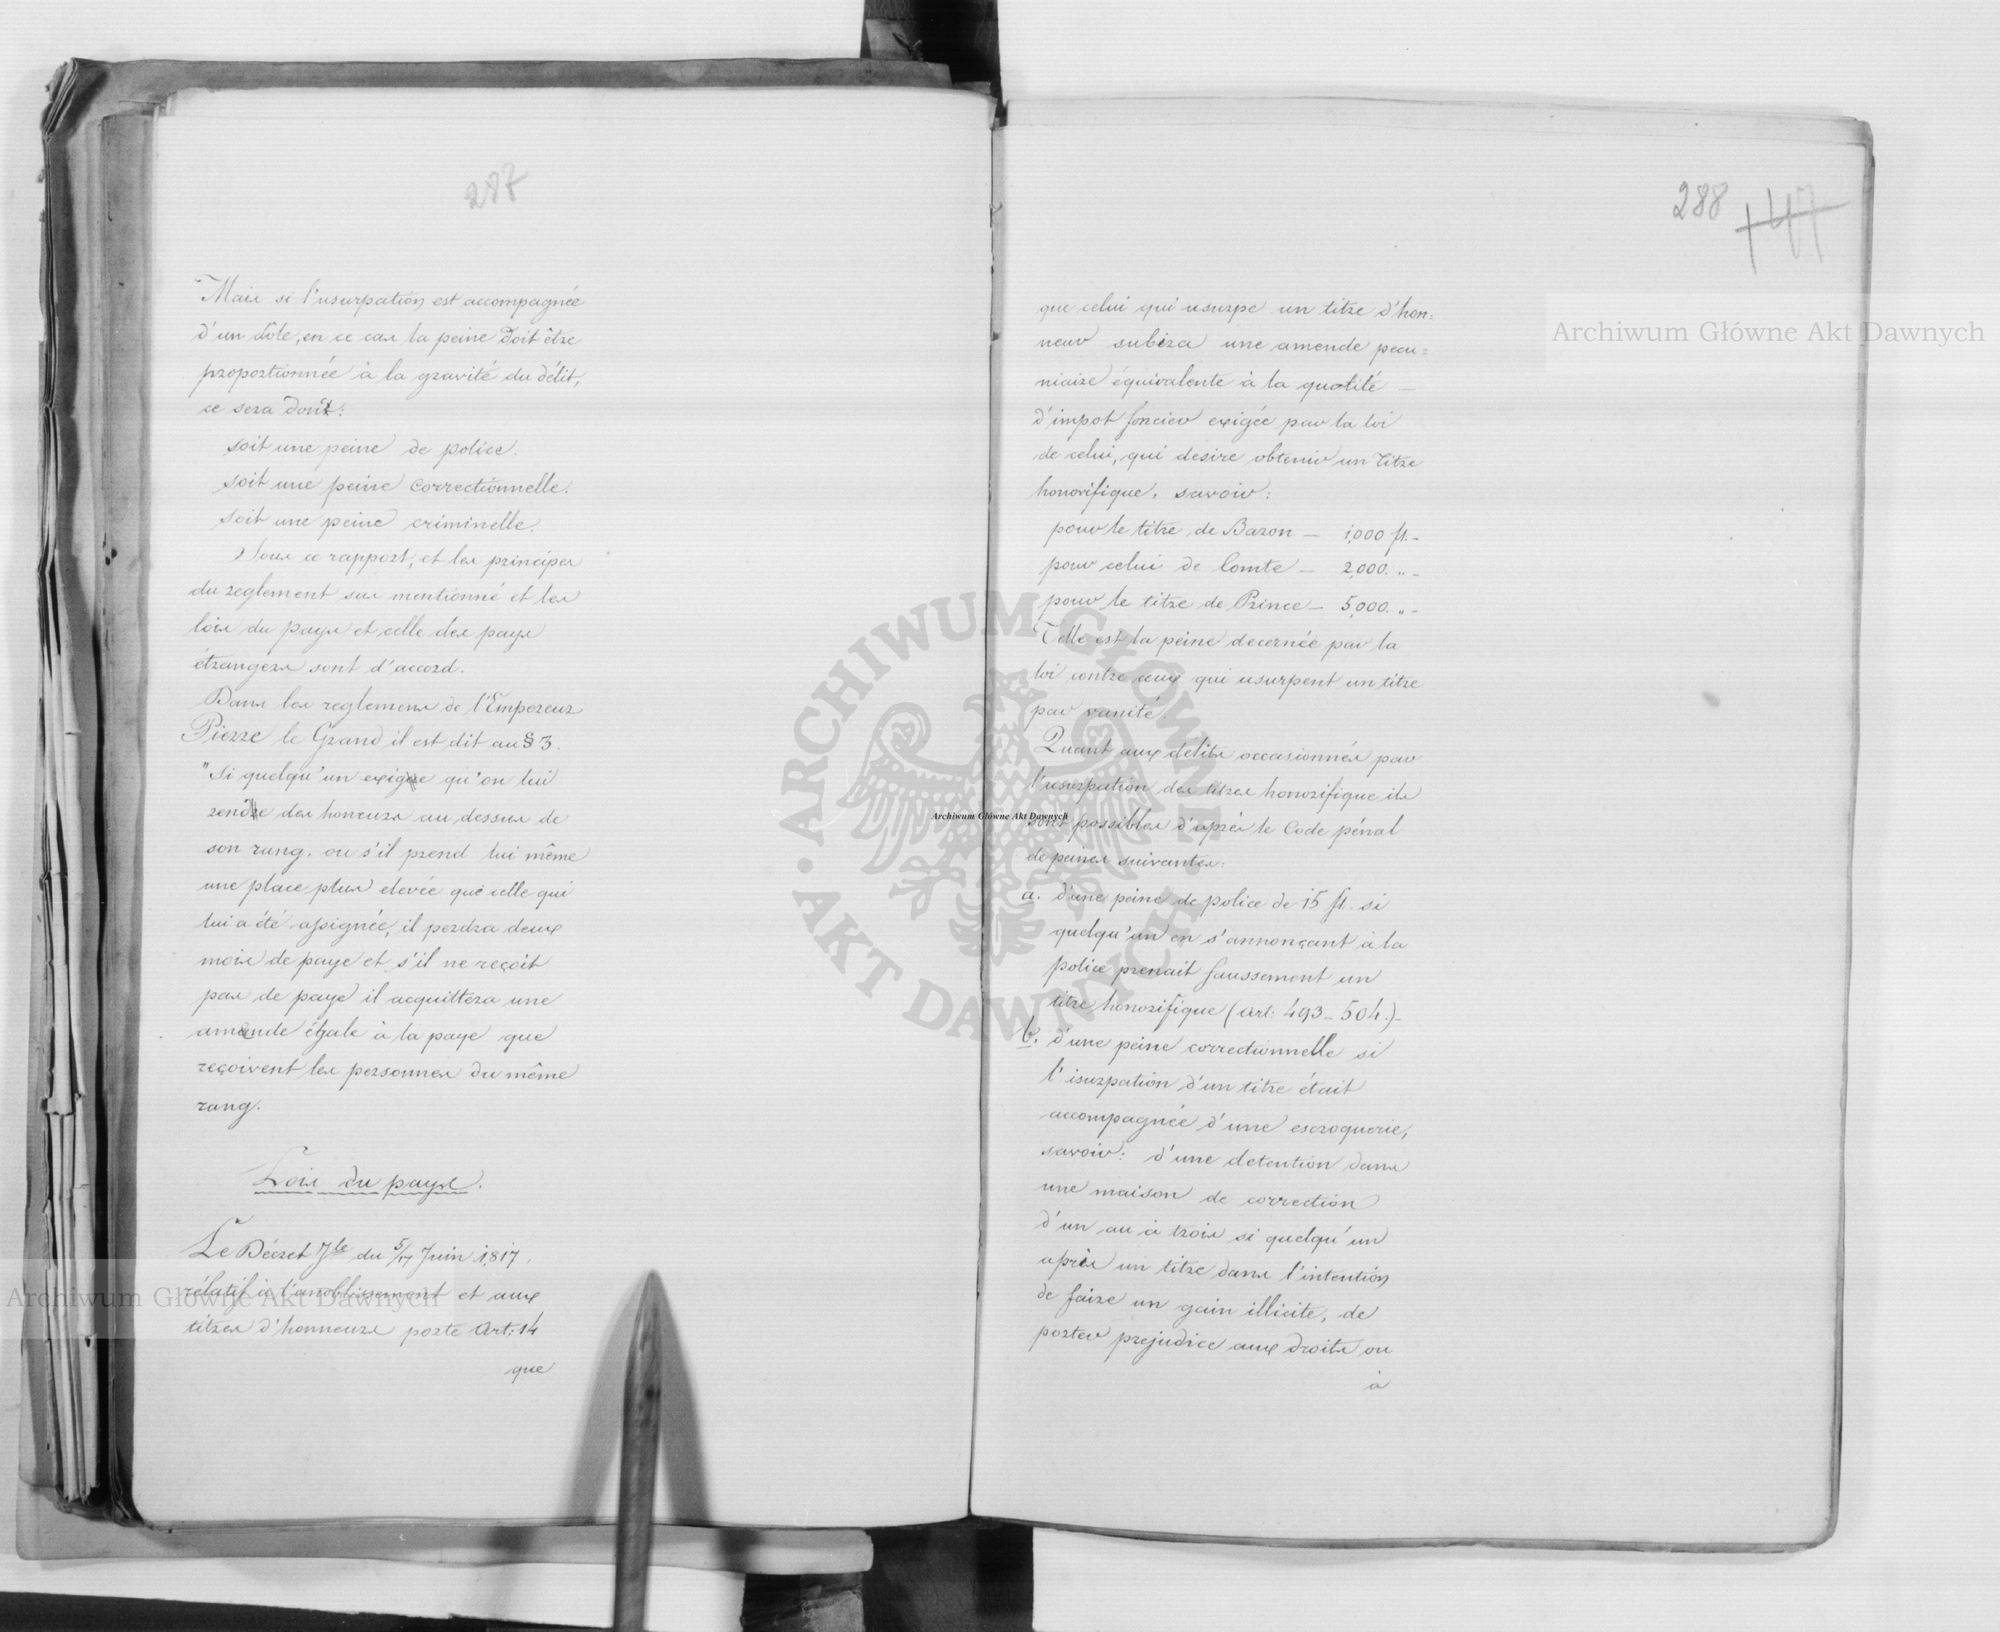 287
Mais si l'usurpation est accompagnée
d'un dôle, en ce cas la peine doit être
proportionnée à la gravité du délit,
ce sera dont:
soit une peine de police.
soit une peine correctionnelle.
soit une peine criminelle.
Sous ce rapport, et les principes
du reglement sus mentionné et les
lois du pays et celle des pays
étrangers sont d'accord.
Dans les reglemens de l'Empereur
Pierre le Grand il est dit au § 3.
"Si quelqu'un exige qu'on lui
rende des honeurs au dessus de
son rang, ou s'il prend lui même
une place plus elevée que celle qui
lui a été assignée, il perdra deux
mois de paye et s'il ne reçoit
pas de paye il acquittera une
amende égale à la paye que
reçoivent les personnes du même
rang.
Lois du pays.
Le Décret du 5/17 Juin 1817,
rélatif à l'anoblissement et aux
titres d'honneurs porte Art: 14
que
288
147
que celui qui usurpe un titre d'hon=
neur subira une amende pecu=
niaire équivalente à la quotité —
d'impot foncier exigée par la loi
de celui, qui desire obtenir un titre
honorifique, savoir:
pour le titre de Baron — 1,000 fl. -
pour celui de Comte — 2,000. " -
pour le titre de Prince — 5,000. " -
Telle est la peine decernée par la
loi contre ceux qui usurpent un titre
par vanité.
Quant aux délits occasionnés par
l'usurpation des titres honorifique ils
sont possibles d'après le Code pénal
de peines suivantes:
a. d'une peine de police de 15 fl. si
quelqu'un en s'annonçant à la
police prenait faussement un
titre honorifique (Art: 493 - 504.) -
b. d'une peine correctionnelle si
l'isurpation d'un titre était
accompagnée d'une escroquerie,
savoir: d'une detention dans
une maison de correction
d'un au à trois si quelqu'un
a pris un titre dans l'intention
de faire un gain illicite, de
porter prejudice aux droits ou
à
Archiwum Główne Akt Dawnych
Archiwum Główne Akt Dawnych
Archiwum Główne Akt Dawnych
ARCHIWUM GŁÓWNE · AKT DAWNYCH ·